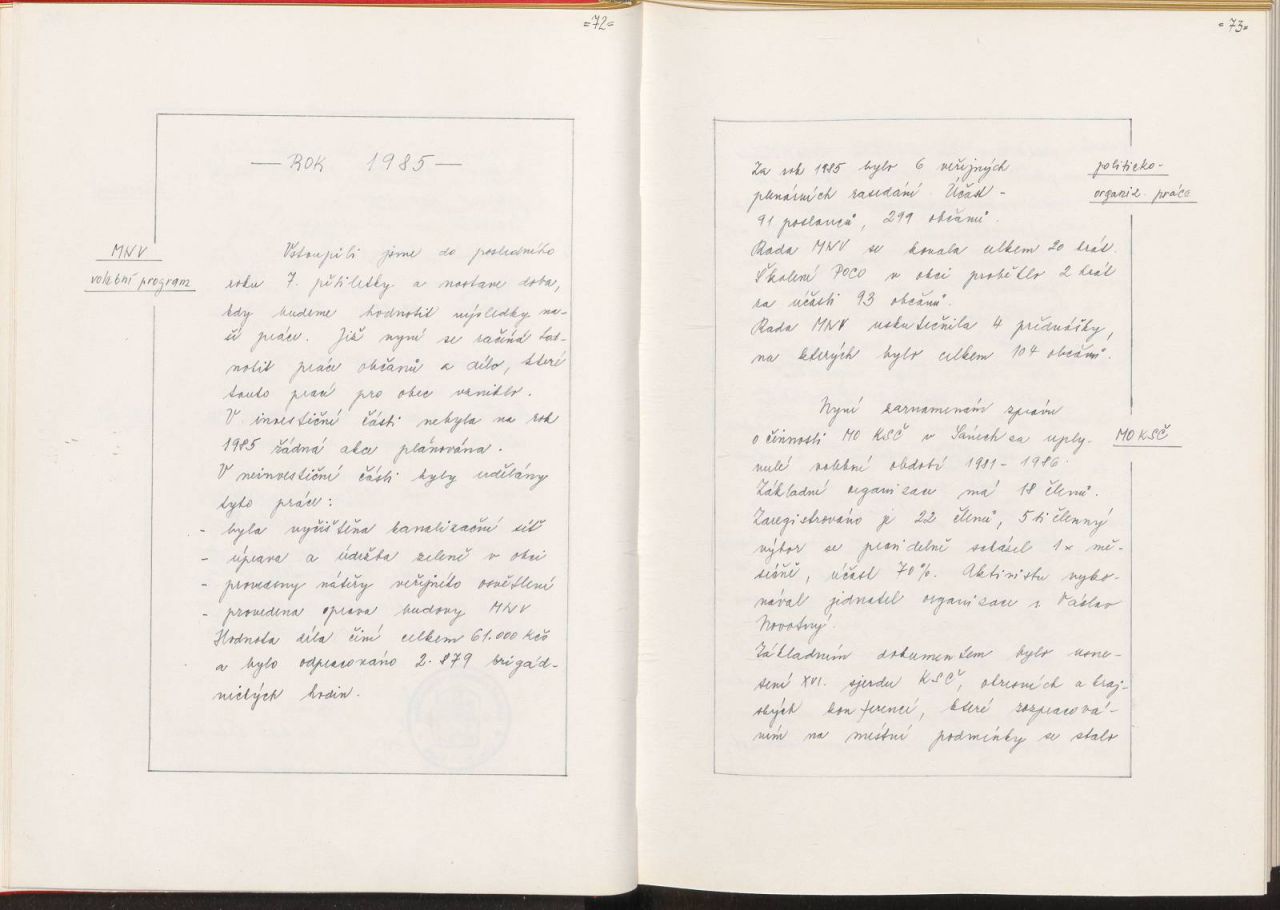 =72=
— ROK 1985 —
MNV
volební program
Vstoupili jsme do posledního
roku 7. pětiletky a nastane doba,
kdy budeme hodnotit výsledky na-
ší práce. Již nyní se začíná hod-
notit práce občanů a dílo, které
touto prací pro obec vzniklo.
V investiční části nebyla na rok
1985 žádná akce plánována.
V neinvestiční části byly udělány
tyto práce:
- byla vyčištěna kanalizační síť
- úprava a údržba zeleně v obci
- provedeny nátěry veřejného osvětlení
- provedena oprava budovy MNV
Hodnota díla činí celkem 61.000 Kčs
a bylo odpracováno 2.879 brigád-
nických hodin.
=73=
politicko-
organiz. práce
Za rok 1985 bylo 6 veřejných
plenárních zasedání. Účast -
91 poslanců, 299 občanů.
Rada MNV se konala celkem 20 krát.
Školení POCO v obci proběhlo 2 krát
za účasti 93 občanů.
Rada MNV uskutečnila 4 přednášky,
na kterých bylo celkem 104 občanů.
MO KSČ
Nyní zaznamenám zprávu
o činnosti MO KSČ v Sánech za uply-
nulé volební období 1981 - 1986.
Základní organizace má 18 členů.
Zaregistrováno je 22 členů, 5 ti členný
výbor se pravidelně scházel 1x mě-
síčně, účast 70%. Aktivistu vyko-
nával jednatel organizace s. Václav
Novotný.
Základním dokumentem bylo usne-
sení XVI. sjezdu KSČ, okresních a kraj-
ských konferencí, které rozpracová-
ním na místní podmínky se stalo